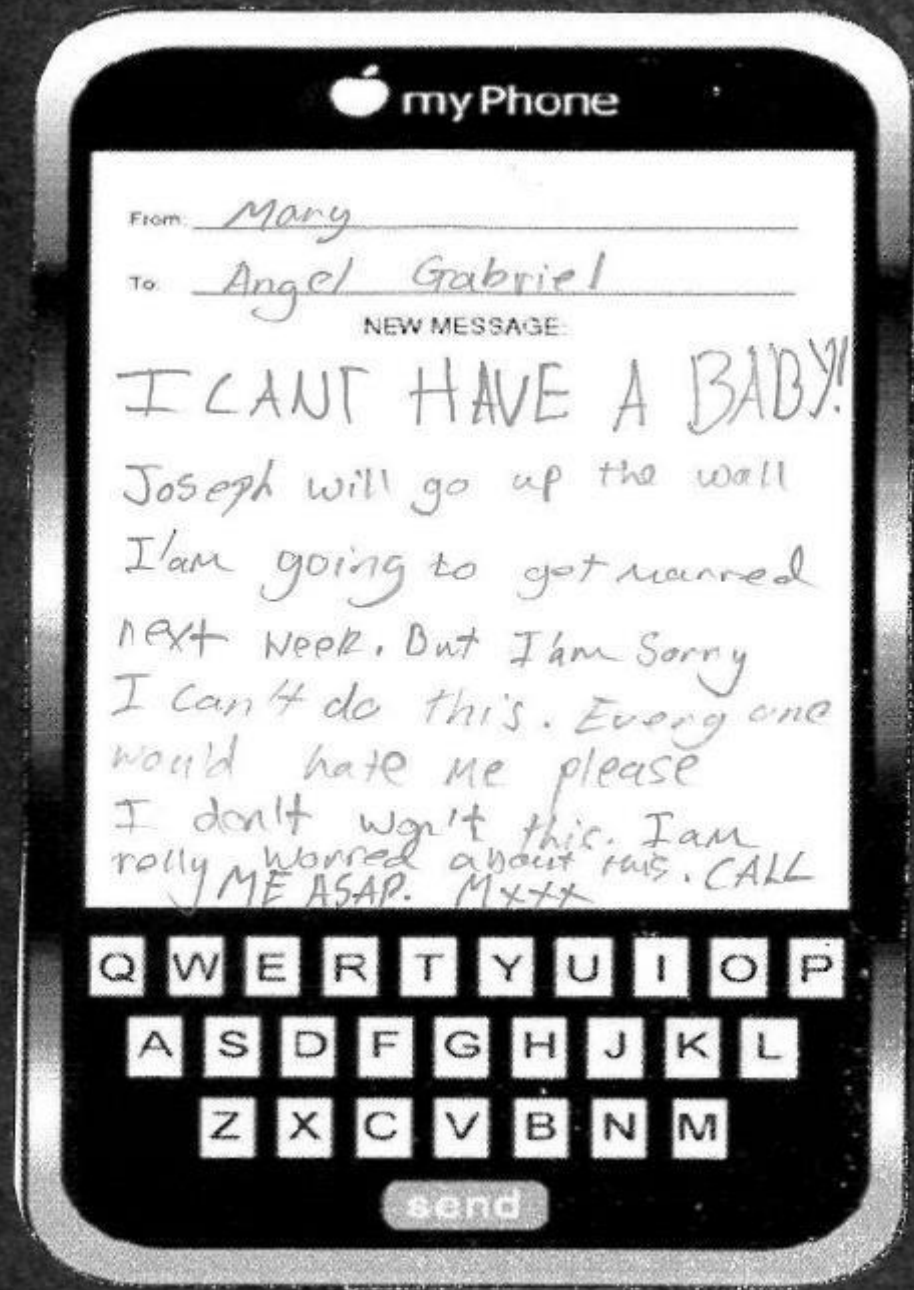 myPhone
From: Mary
To: Angel Gabriel
NEW MESSAGE:
I CANT HAVE A BABY!!
Joseph will go up the wall
I'am going to get marred
next week. But I'am Sorry
I can't do this. Everyone
would hate me please
I don't won't this. I am
relly worred about this. CALL
ME ASAP. Mxxx
Q W E R T Y U I O P
A S D F G H J K L
Z X C V B N M
send